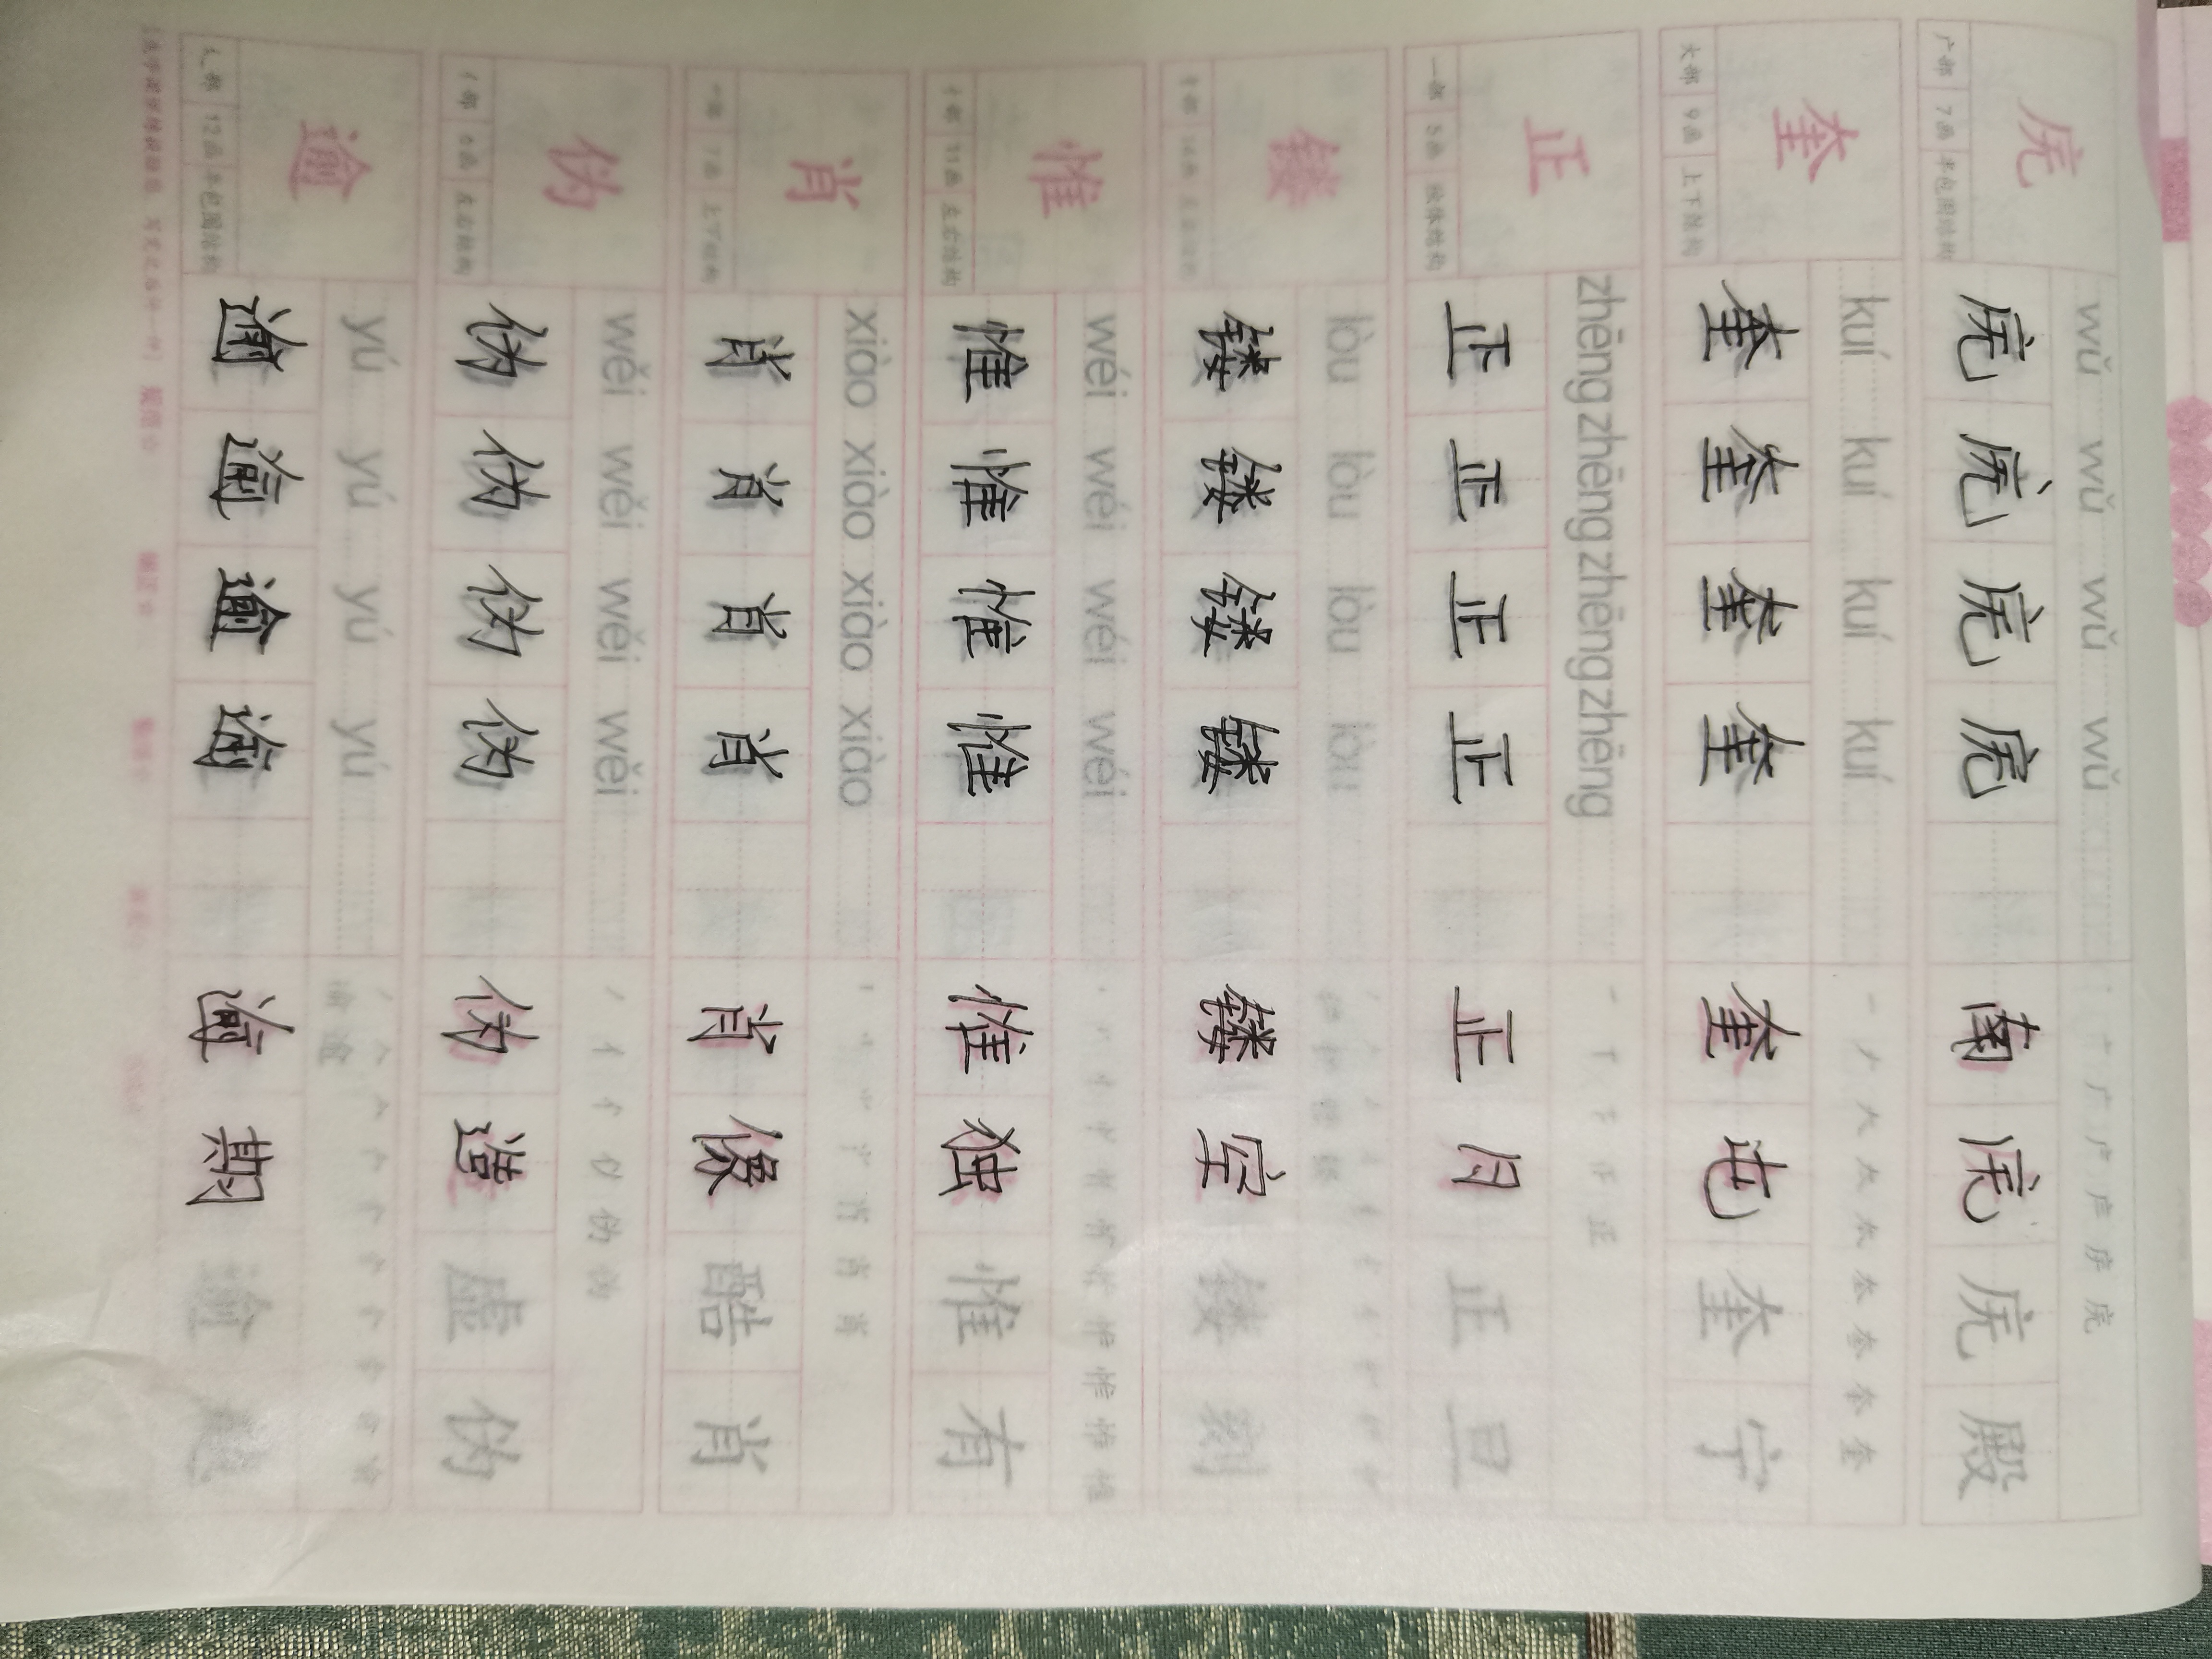 wǔ wǔ wǔ wǔ
庑
广部 7画 半包围结构
庑 庑 庑 庑 南 庑 庑 殿
kuí kuí kuí kuí
奎
大部 9画 上下结构
奎 奎 奎 奎 奎 屯 奎 宁
zhēng zhēng zhēng zhēng
正
一部 5画 独体结构
正 正 正 正 正 月 正 旦
lòu lòu lòu lòu
镂
镂 镂 镂 镂 镂 空 镂 刻
wéi wéi wéi wéi
惟
忄部 11画 左右结构
惟 惟 惟 惟 惟 独 惟 有
xiào xiào xiào xiào
肖
7画 上下结构
肖 肖 肖 肖 肖 像 酷 肖
wěi wěi wěi wěi
伪
亻部 6画 左右结构
伪 伪 伪 伪 伪 造 虚 伪
yú yú yú yú
逾
辶部 12画 半包围结构
逾 逾 逾 逾 逾 期 逾 越